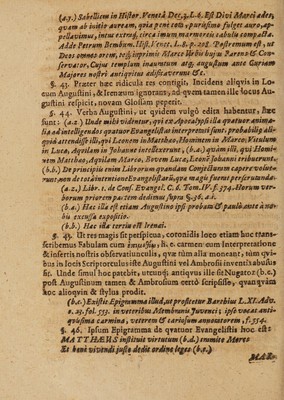 (a.7.) Sabellium in Histor. Venetâ Dec. 1. L. 8. Est Divi Marci ædes,
quam ab initio auream, quia penè tota, purissimo fulget auro, ap-
pellavimus, intus extraq; circa imum marmoreis tabulis compacta.
Adde Petrum Bembum. Hist. Venet. L. 8. p. 218. Postremum est, ut
Deos omnes orem, tesq; inprimis Marce Urbis hujus Parens & Con-
servator, Cujus templum inauratum atq; augustum ante Curiam
Majores nostri antiquitus ædificaverunt &c.
§. 43. Præter hæc ridicula res contigit. Incidens aliqvis in Lo-
cum Augustini, & Irenæum ignorans, ad qvem tamen ille locus Au-
gustini respicit, novam Glossam pepetit.
§. 44. Verba Augustini, ut qvidem vulgò edita habentur, hæc
sunt: (a.z.) Unde mihi videntur, qvi ex Apocalypsi illa quatuor anima-
lia ad intelligendos quatuor Evangelistas interpretati sunt, probabiliq; ali-
qvid attendisse illi, qui Leonem in Matthæo, Hominem in Marco, Vitulum
in Luca, Aqvilam in Johanne intellexerunt, (b.a.) qvàm illi, qvi Homi-
nem Matthæo, Aqvilam Marco, Bovem Lucæ, Leonẽ Johanni tribuerunt.
(b.b.) De principiis enim Librorum quandam Conjecturam capere voluerunt
(a.z.) Libr. 1. de Conf. Evangel. C. 6. Tom. IV. f. 374. Horum ver-
borum priorem partem dedimus suprà §. 36. a.i.
(b.a.) Hac illa est etiam Augustino ipsi probata & paulò ante à no-
bis excussa expositio.
(b.b.) Hæc illa tertia est Irenæi.
§. 45. Ut res magis sit perspicua, coronidis loco etiam hoc trans-
scribemus Fabulam cum
& inserta nostris observatiunculis, quæ tùm illa monstrat, tùm qvi-
bus in locis Scriptor cultus iste Augustini vel Ambrosii inventi abusus
sit. Unde simul hoc patebit, utcunq; antiqvus ille sit Nugator (b.c.)
post Augustinum tamen & Ambrosium certò scripsisse, qvanqvàm
hoc alioqvin & stylus prodit.
(b.c.) Exstit Epigramma illud, ut protestatur Barthius L. XI. Adv.
c. 23. fol. 553. in veteribus Membranis Juvenci; ipse vocat anti-
qvissima carmina, veterem & curiosum annotatorem, f. 554.
§. 46. Ipsum Epigramma de qvatuor Evangelistis hoc est:
MATTHÆUS instituit virtutum (b.d.) omnite Mores
Et benè vivendi justo dedit ordine leges (b.e.)
MAR-